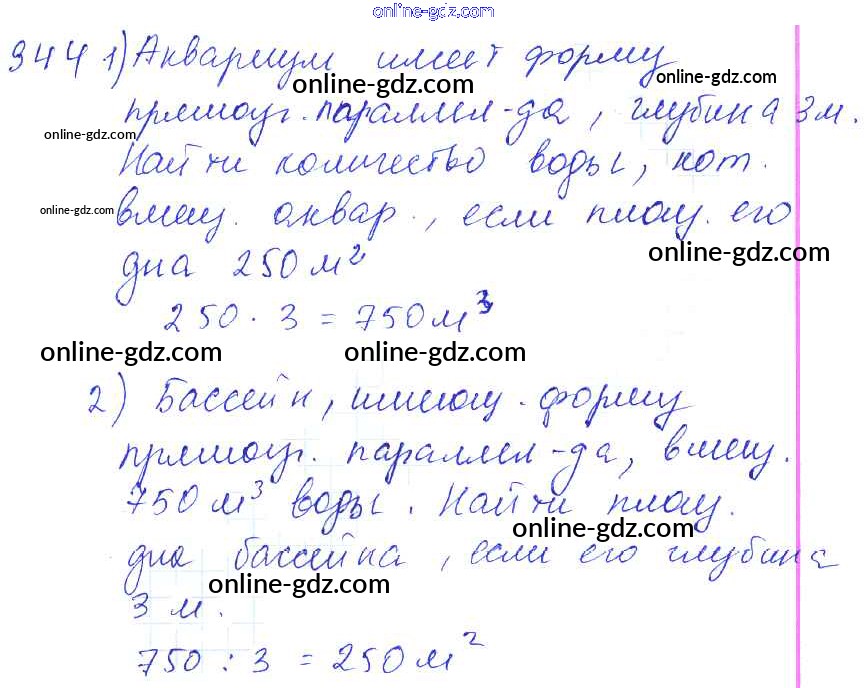 online-gdz.com
944 1) Аквариум имеет форму
online-gdz.com online-gdz.com
прямоуг. параллел-да, глубина 3 м.
online-gdz.com
Найти количество воды, кот.
online-gdz.com вмещ. аквар., если площ. его
online-gdz.com
дна 250 м²
250 · 3 = 750 м³
online-gdz.com online-gdz.com
2) Бассейн, имеющ. форму
прямоуг. параллел-да, вмещ.
750 м³ воды. Найти площ.
online-gdz.com
дна бассейна, если его глубина
online-gdz.com
3 м.
750 : 3 = 250 м²